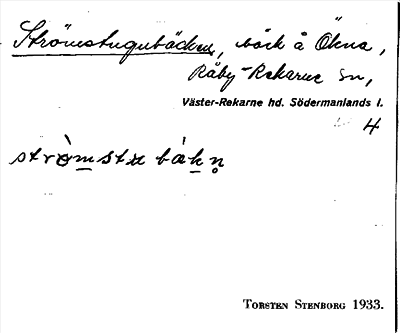 Strömstugubäcken, bäck å Ökna,
Råby-Rekarne sn,
Väster-Rekarne hd. Södermanlands l.
4
strömstu bäkn
TORSTEN STENBORG 1933.